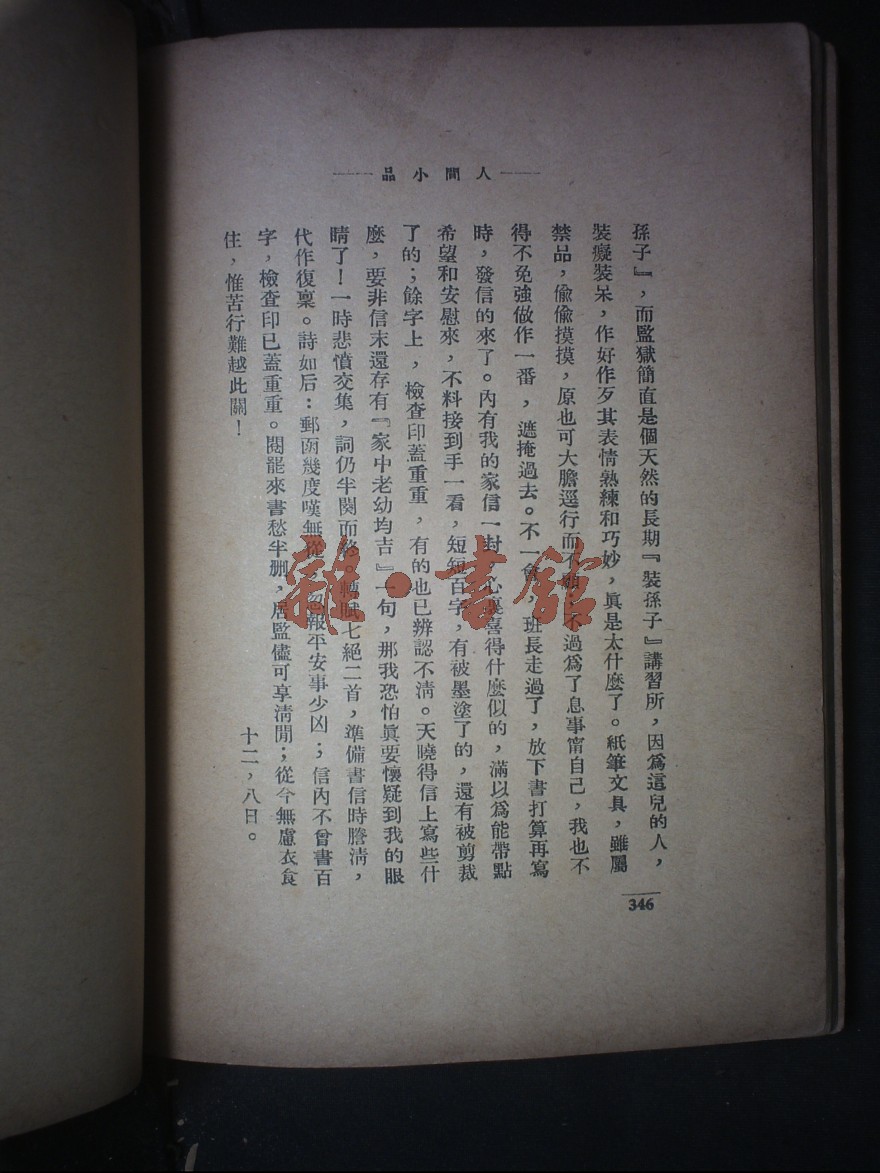 人間小品
孫子』，而監獄簡直是個天然的長期『裝孫子』講習所，因爲這兒的人，
裝癡裝呆，作好作歹其表情熟練和巧妙，眞是太什麼了。紙筆文具，雖屬
禁品，偸偸摸摸，原也可大膽逕行而不，不過爲了息事甯自己，我也不
得不免強做作一番，遮掩過去。不一會，班長走過了，放下書打算再寫
時，發信的來了。內有我的家信一封，心裏喜得什麼似的，滿以爲能帶點
希望和安慰來，不料接到手一看，短短百字，有被墨塗了的，還有被剪裁
了的；餘字上，檢查印蓋重重，有的也已辨認不淸。天曉得信上寫些什
麼，要非信末還存有『家中老幼均吉』一句，那我恐怕眞要懷疑到我的眼
睛了！一時悲憤交集，詞仍半闋而，轉賦七絕二首，準備書信時謄淸，
代作復稟。詩如后：郵函幾度嘆無從，報平安事少凶；信內不曾書百
字，檢查印已蓋重重。閱罷來書愁半删，居監儘可享淸閒；從今無慮衣食
住，惟苦行難越此關！
十二，八日。
346
雜·書館